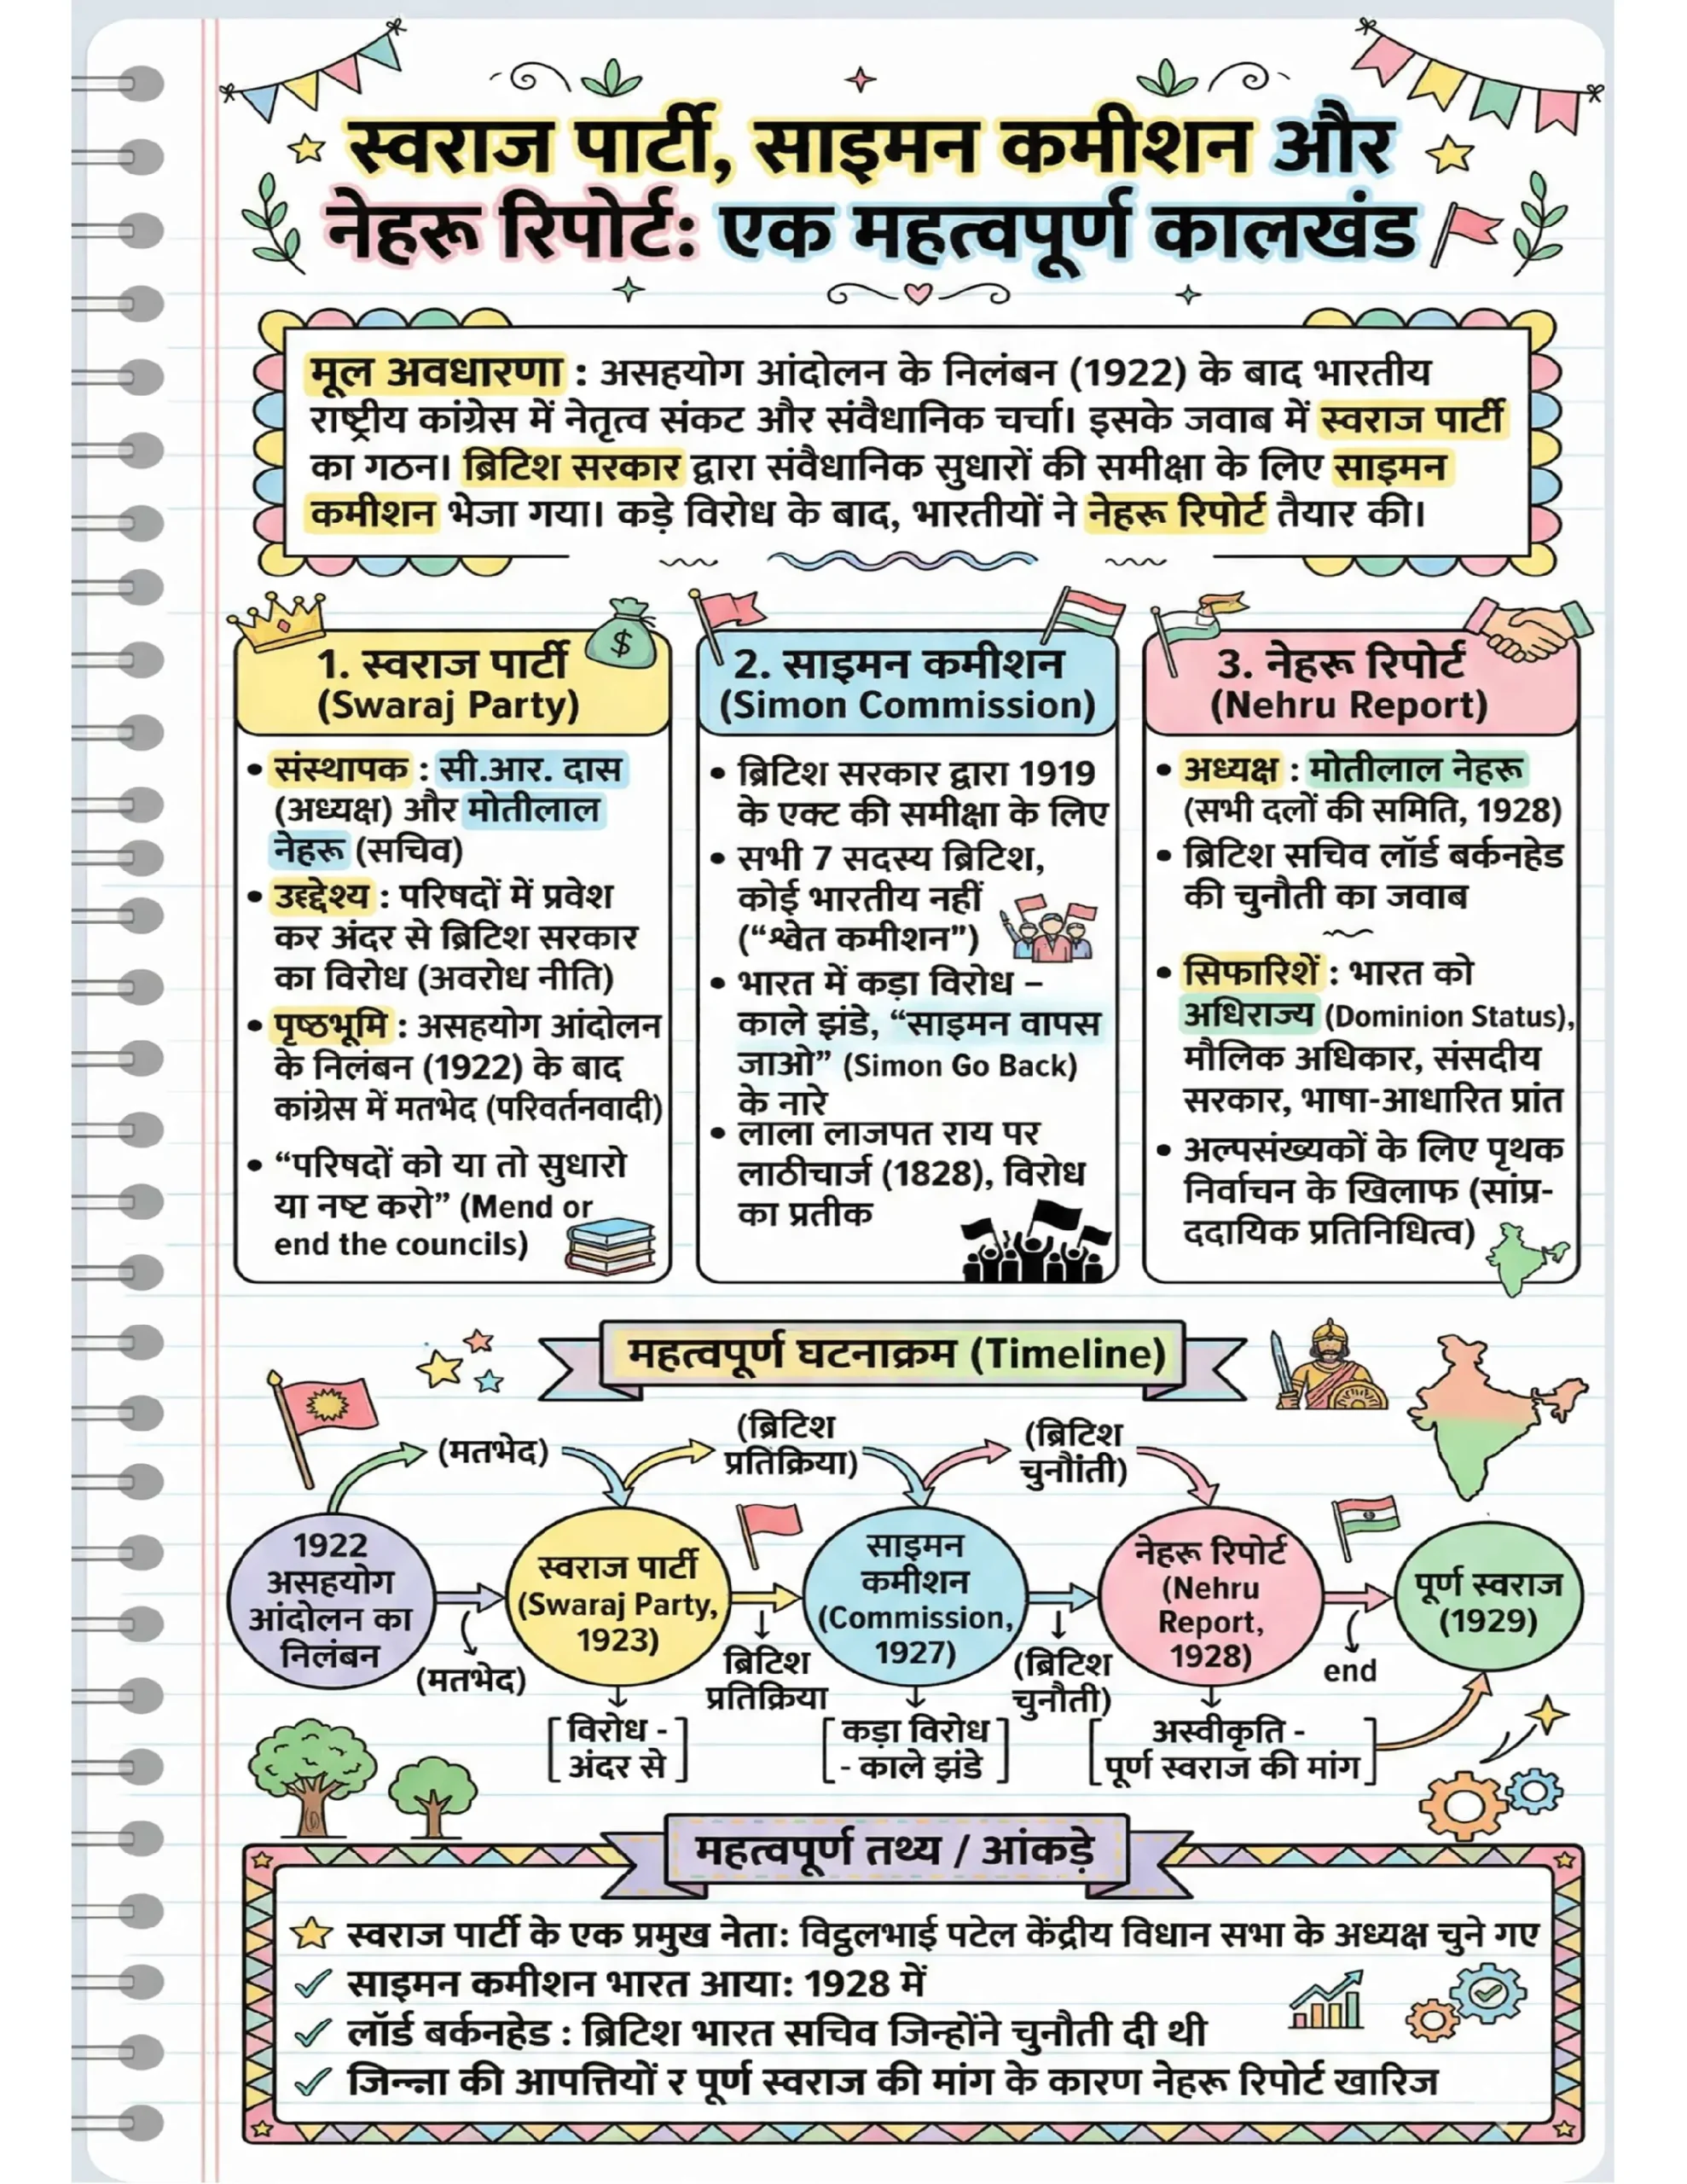 स्वराज पार्टी, साइमन कमीशन और
नेहरू रिपोर्ट: एक महत्वपूर्ण कालखंड
मूल अवधारणा : असहयोग आंदोलन के निलंबन (1922) के बाद भारतीय
राष्ट्रीय कांग्रेस में नेतृत्व संकट और संवैधानिक चर्चा। इसके जवाब में स्वराज पार्टी
का गठन। ब्रिटिश सरकार द्वारा संवैधानिक सुधारों की समीक्षा के लिए साइमन
कमीशन भेजा गया। कड़े विरोध के बाद, भारतीयों ने नेहरू रिपोर्ट तैयार की।
$
1. स्वराज पार्टी
(Swaraj Party)
• संस्थापक : सी.आर. दास
(अध्यक्ष) और मोतीलाल
नेहरू (सचिव)
• उद्देश्य : परिषदों में प्रवेश
कर अंदर से ब्रिटिश सरकार
का विरोध (अवरोध नीति)
• पृष्ठभूमि : असहयोग आंदोलन
के निलंबन (1922) के बाद
कांग्रेस में मतभेद (परिवर्तनवादी)
• “परिषदों को या तो सुधारो
या नष्ट करो” (Mend or
end the councils)
2. साइमन कमीशन
(Simon Commission)
• ब्रिटिश सरकार द्वारा 1919
के एक्ट की समीक्षा के लिए
• सभी 7 सदस्य ब्रिटिश,
कोई भारतीय नहीं
(“श्वेत कमीशन”)
• भारत में कड़ा विरोध –
काले झंडे, “साइमन वापस
जाओ” (Simon Go Back)
के नारे
• लाला लाजपत राय पर
लाठीचार्ज (1828), विरोध
का प्रतीक
3. नेहरू रिपोर्ट
(Nehru Report)
• अध्यक्ष : मोतीलाल नेहरू
(सभी दलों की समिति, 1928)
• ब्रिटिश सचिव लॉर्ड बर्कनहेड
की चुनौती का जवाब
• सिफारिशें : भारत को
अधिराज्य (Dominion Status),
मौलिक अधिकार, संसदीय
सरकार, भाषा-आधारित प्रांत
• अल्पसंख्यकों के लिए पृथक
निर्वाचन के खिलाफ (सांप्र-
ददायिक प्रतिनिधित्व)
महत्वपूर्ण घटनाक्रम (Timeline)
(मतभेद)
(ब्रिटिश
प्रतिक्रिया)
(ब्रिटिश
चुनौंती)
1922
असहयोग
आंदोलन का
निलंबन
(मतभेद)
स्वराज पार्टी
(Swaraj Party,
1923)
ब्रिटिश
प्रतिक्रिया
साइमन
कमीशन
(Commission,
1927)
(ब्रिटिश
चुनौती)
नेहरू रिपोर्ट
(Nehru
Report,
1928)
end
पूर्ण स्वराज
(1929)
[विरोध -
अंदर से]
[कड़ा विरोध
- काले झंडे]
[अस्वीकृति -
पूर्ण स्वराज की मांग]
महत्वपूर्ण तथ्य / आंकड़े
स्वराज पार्टी के एक प्रमुख नेता: विट्ठलभाई पटेल केंद्रीय विधान सभा के अध्यक्ष चुने गए
✓ साइमन कमीशन भारत आया: 1928 में
✓ लॉर्ड बर्कनहेड : ब्रिटिश भारत सचिव जिन्होंने चुनौती दी थी
✓ जिन्ना की आपत्तियों र पूर्ण स्वराज की मांग के कारण नेहरू रिपोर्ट खारिज